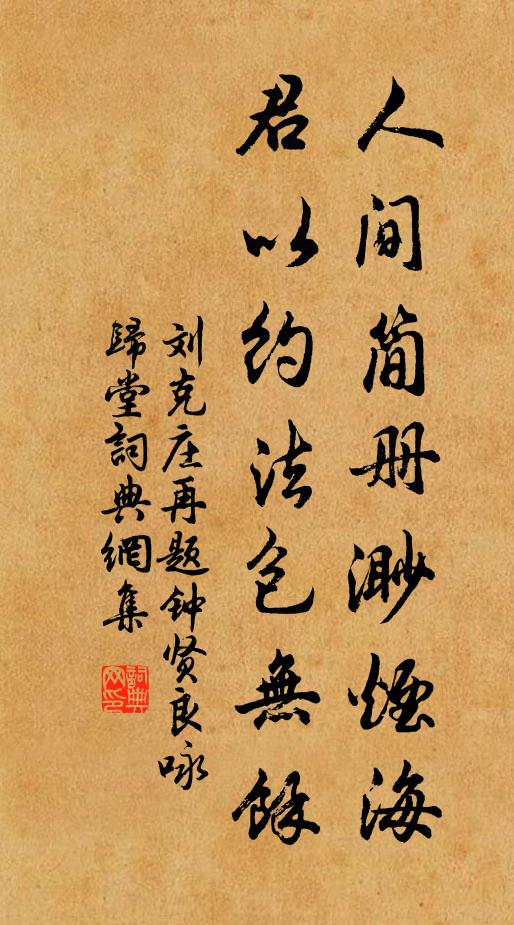 人间简册渺烟海
君以约法包無餘
刘克庄再题钟贤良咏
歸堂詞典網集
詞典网印